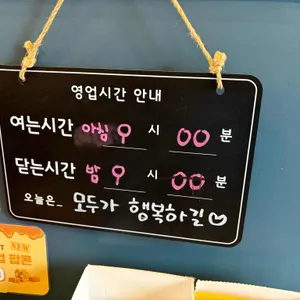 영업시간 안내
여는시간 아침 9 시 00 분
닫는시간 밤 9 시 00 분
오늘은_ 모두가 행복하길♡
NEW
팝콘